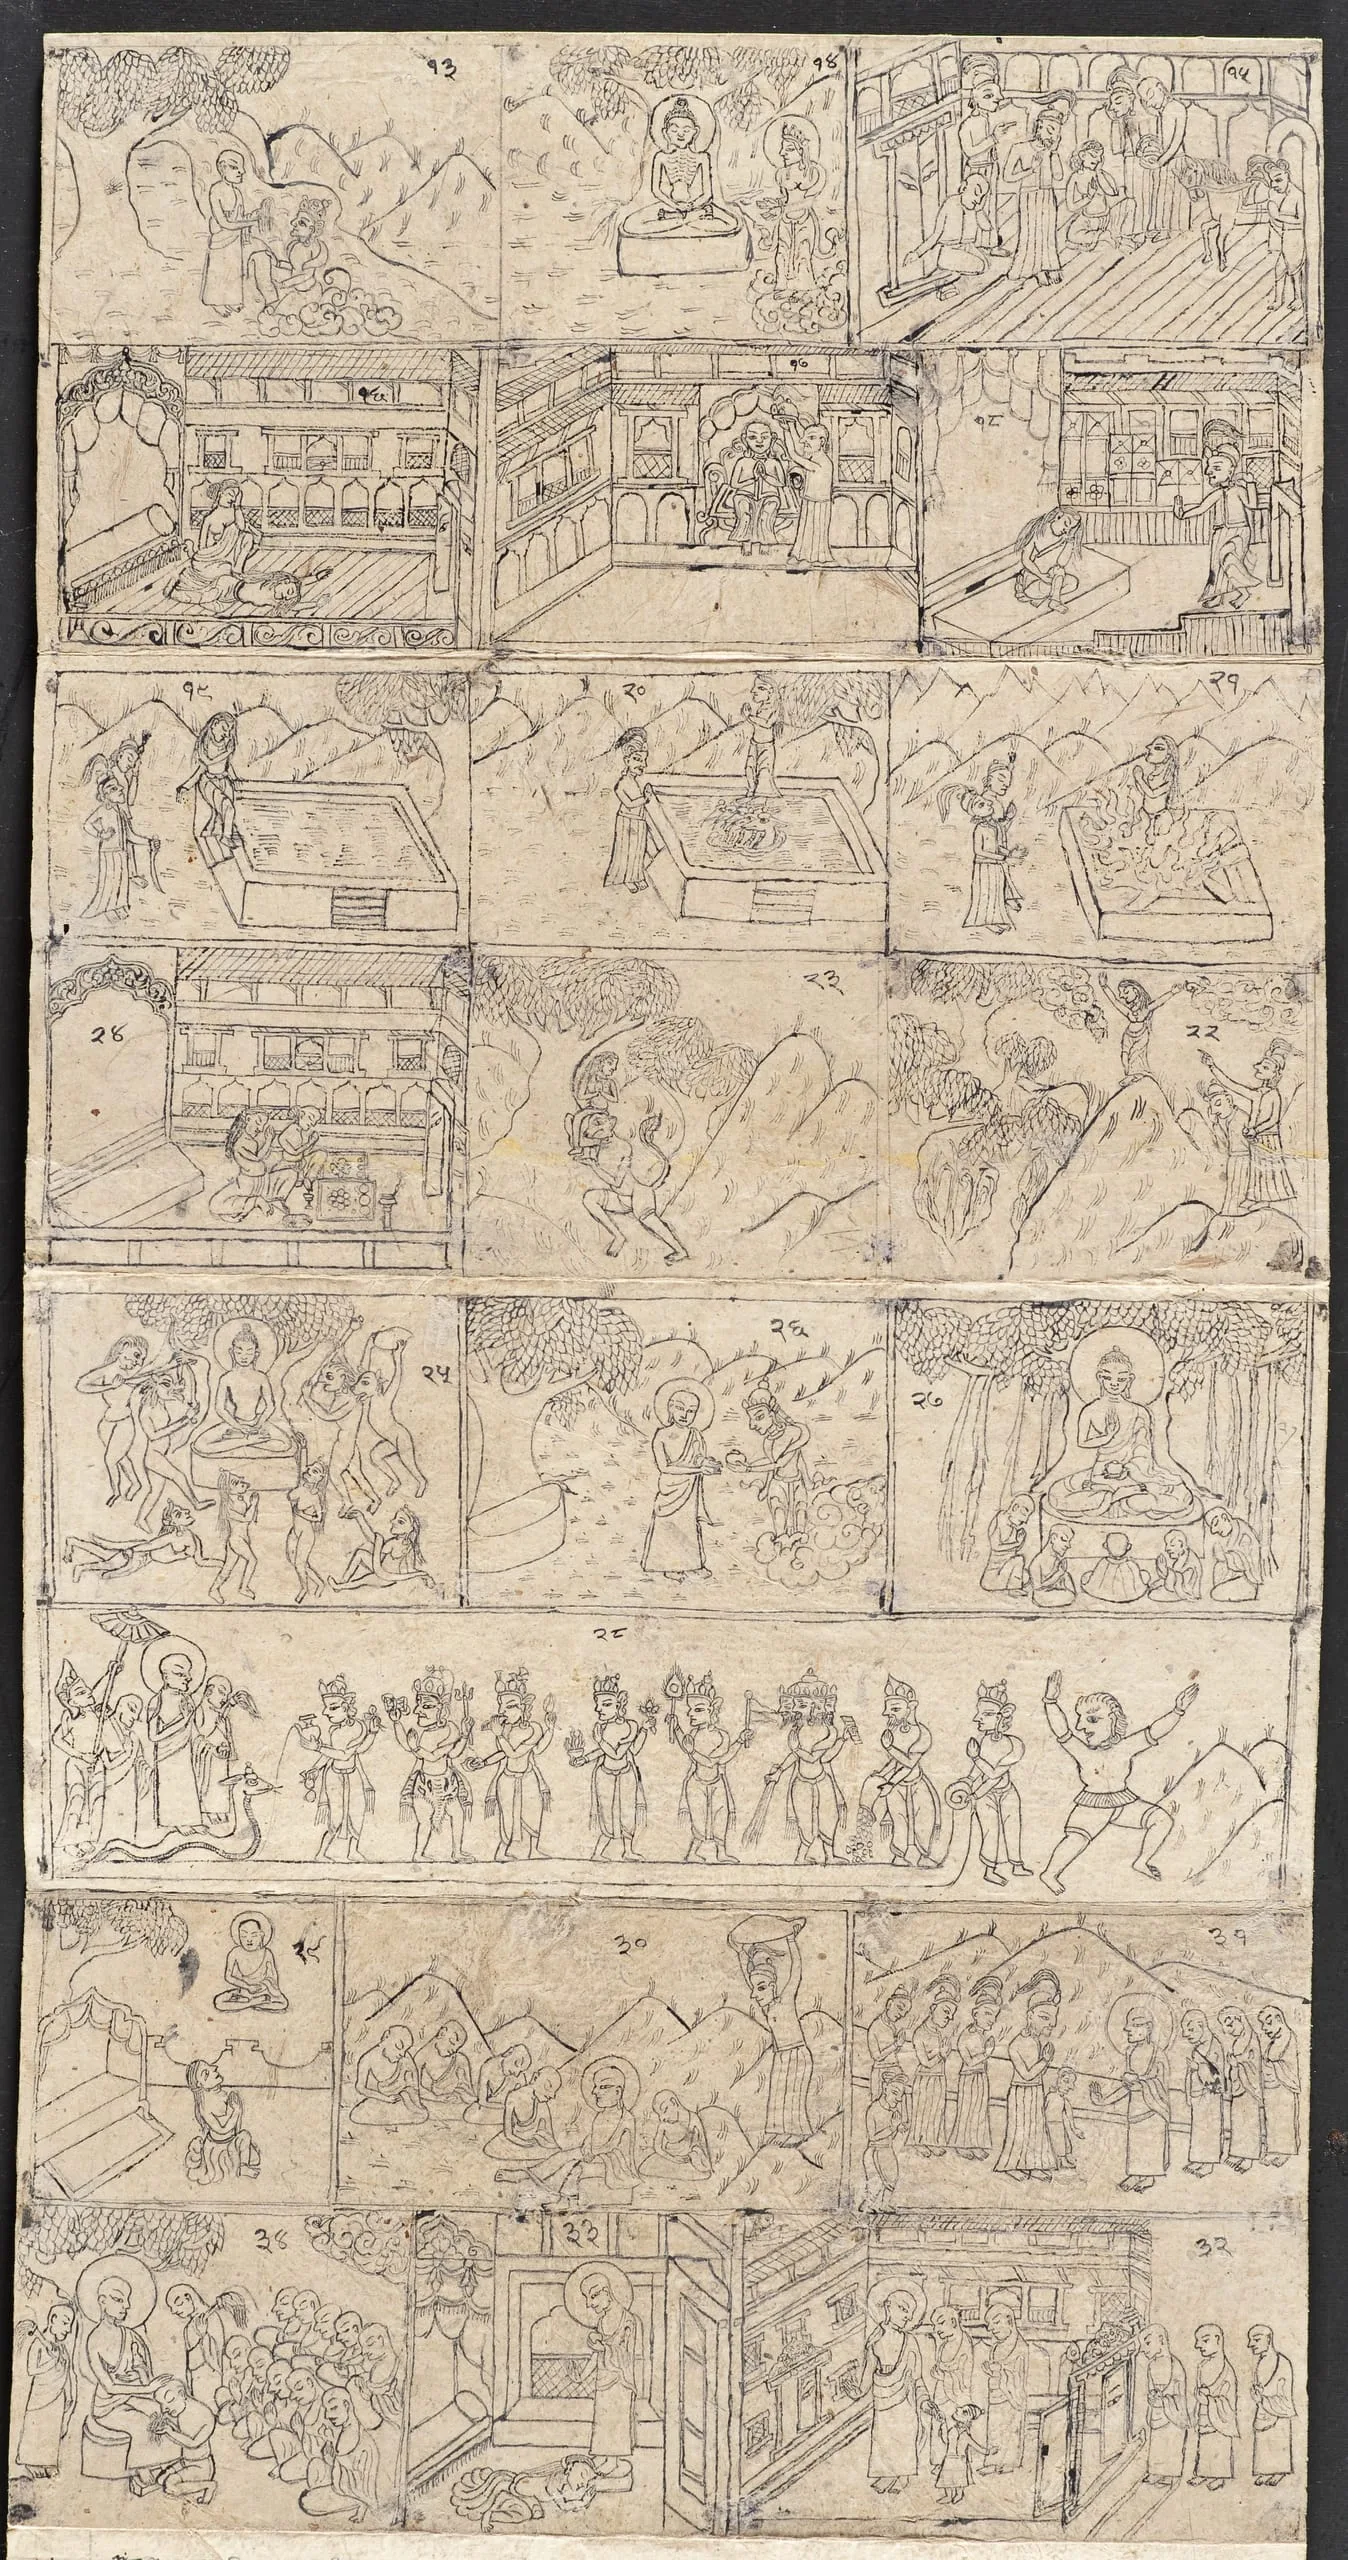 १३
१४
१५
१६
१७
१८
१९
२०
२१
२४
२३
२२
२५
२६
२७
२८
२९
३०
३१
३४
३३
३२